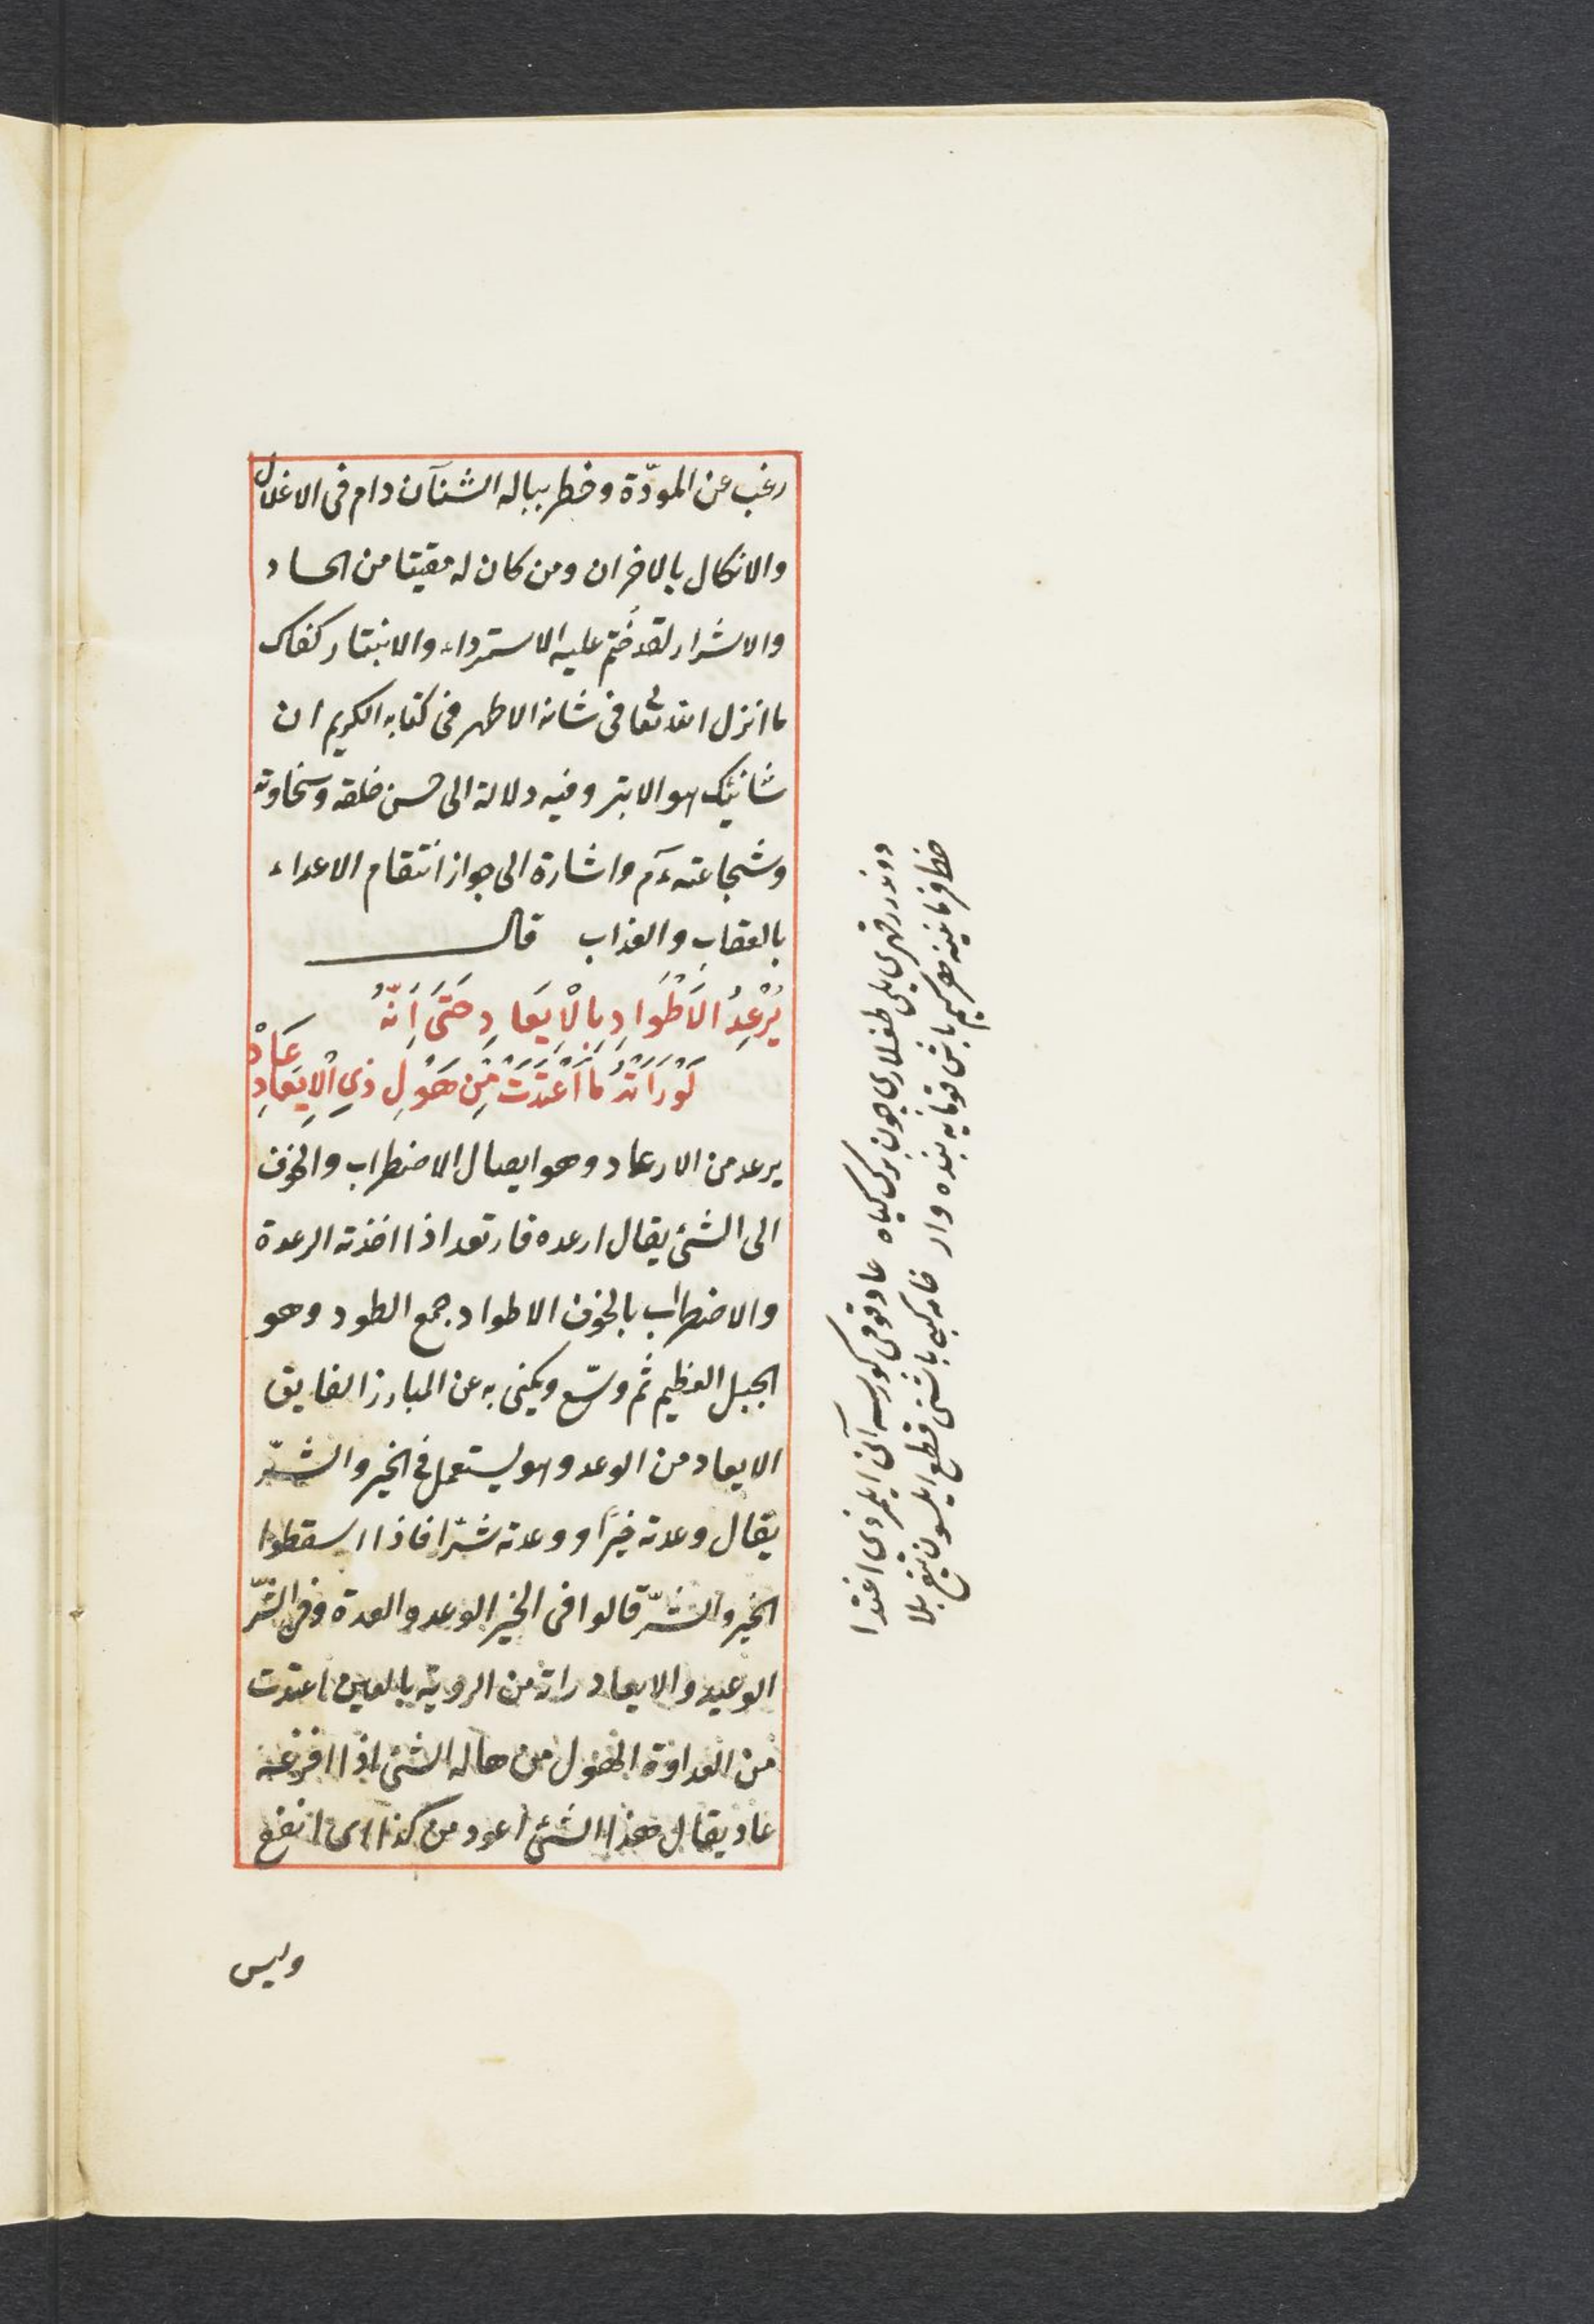 رغب عن المودّة وخطر بباله الشنآن دام فى الاغلال
والانكال بالاخران ومن كان له مقيتا من الحساد
والاشرار لقد خُتم عليه الاستمرداء والانبتار كفاك
ما انزل الله تعالى فى شانه الاطهر فى كتابه الكريم ان
شانيئك هو الابتر وفيه دلالة الى حسن خلقه وسخاوته
وشجاعته عم واشارة الى جواز انتقام الاعداء
بالعقاب والعذاب قال
يُرْعِدُ الْاَطْوَادِ بِالْاِيعَادِ حَتَّى اَنَّهُ
لَوْ رَاَتْهُ مَا اعْتَدَتْ مِنْ هَوْلِ ذِي الْاِيعَادِ عَادْ
يرعد من الارعاد وهو ايصال الاضطراب والخوف
الى الشئ يقال ارعده فارتعد اذا اخذته الرعدة
والاضطراب بالخوف الاطواد جمع الطود وهو
الجبل العظيم ثم وسّع ويكنى به عن المبارز الفايق
الايعاد من الوعد وهو يستعمل فى الخير والشرّ
يقال وعدته خيرًا ووعدته شرّا فاذا اسقطوا
الخير والشرّ قالوا فى الخير الوعد والعدة وفى الشرّ
الوعيد والايعاد راته من الروية بالعين اعتدت
من العداوة الهول من هاله الشئ اذا افزعه
عاد يقال هذا الشئ اعود من كذا اى انفع
وليس
دوندرر قهرى يلى طغلارى چون برك كياه عاد قومى كورسه آنى ايلمزدى اعتدا
خط فرمانينه هر كيم باش قومايه بنده وار خامه كبى باشنى قطع ايلسون تيغ بلا